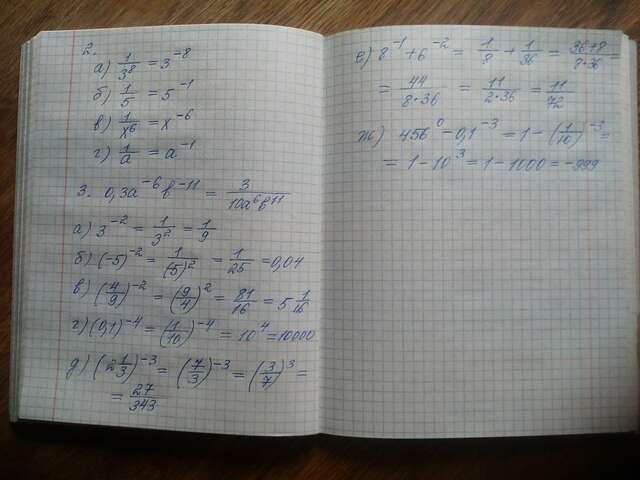 2.
а) 1/3⁸ = 3⁻⁸
б) 1/5 = 5⁻¹
в) 1/x⁶ = x⁻⁶
г) 1/a = a⁻¹
3. 0,3a⁻⁶b⁻¹¹ = 3/10a⁶b¹¹
а) 3⁻² = 1/3² = 1/9
б) (-5)⁻² = 1/(-5)² = 1/25 = 0,04
в) (4/9)⁻² = (9/4)² = 81/16 = 5 1/16
г) (0,1)⁻⁴ = (1/10)⁻⁴ = 10⁴ = 10000
д) (2 1/3)⁻³ = (7/3)⁻³ = (3/7)³ =
= 27/343
е) 8⁻¹ + 6⁻² = 1/8 + 1/36 = 36+8/8·36 =
= 44/8·36 = 11/2·36 = 11/72
ж) 456⁰ - 0,1⁻³ = 1 - (1/10)⁻³ =
= 1 - 10³ = 1 - 1000 = -999